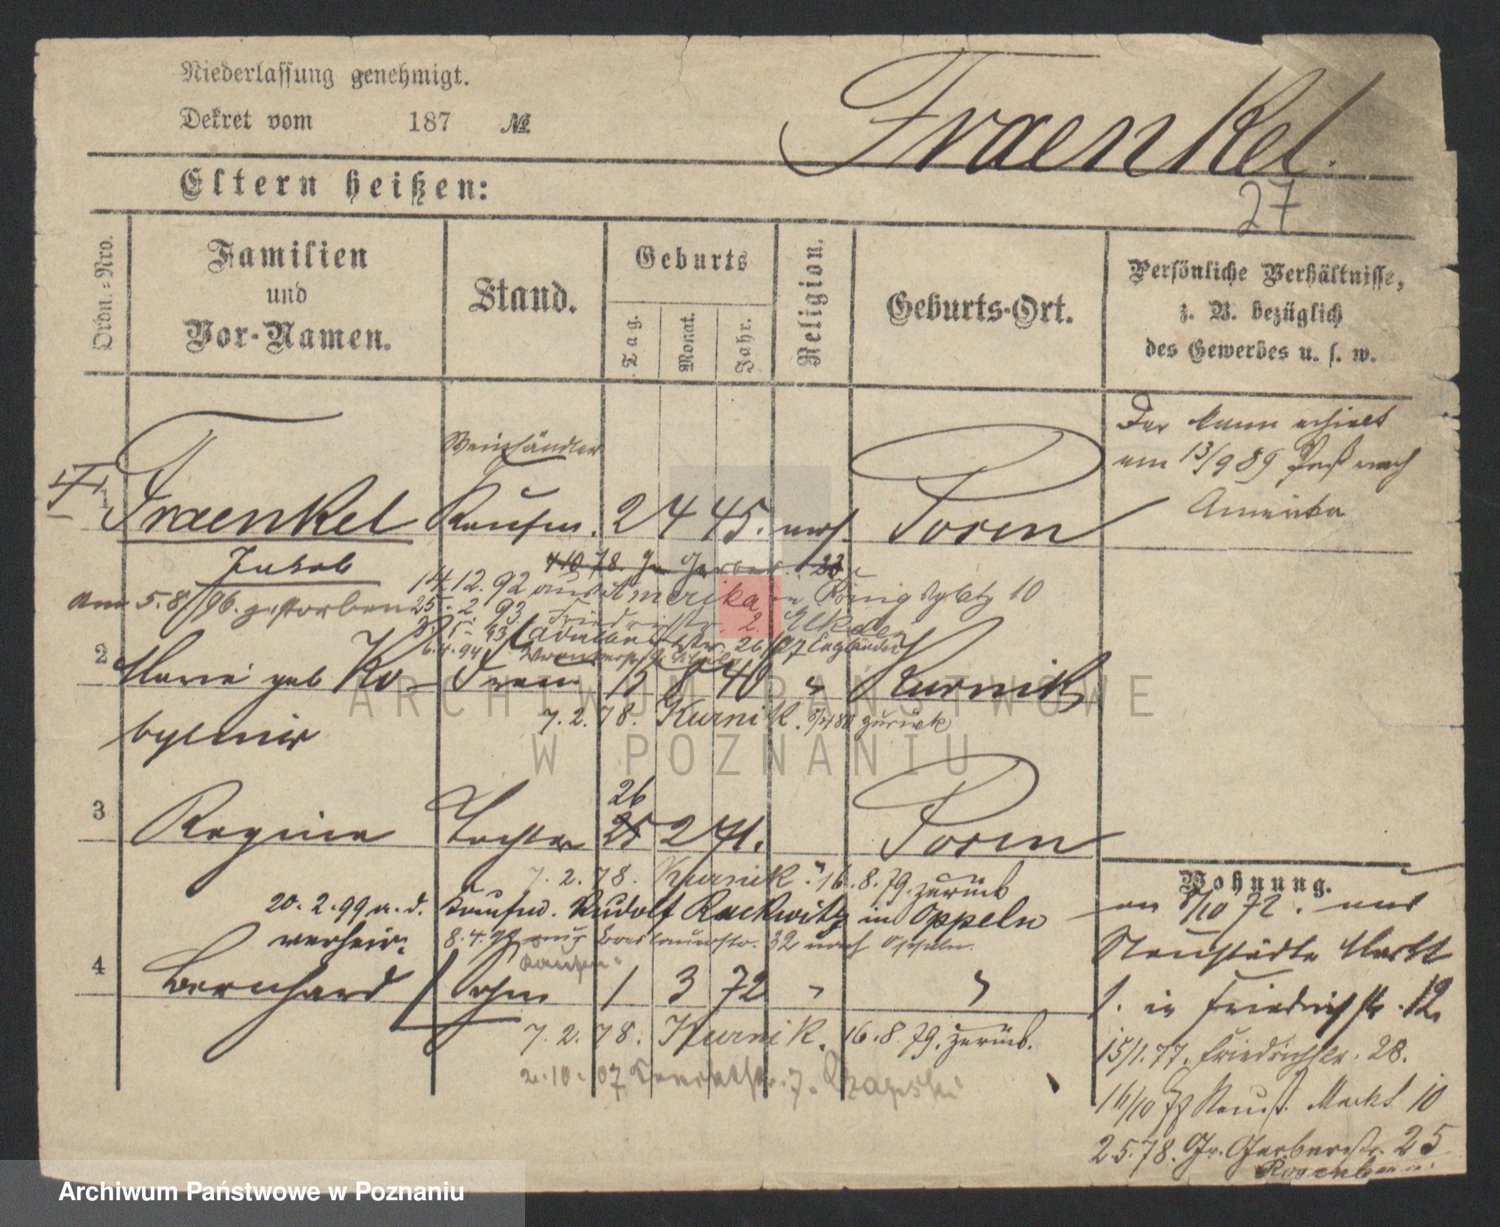 Niederlassung genehmigt.
Dekret vom 187 №
Fraenkel.
27
Eltern heißen:
Ordn.-Nro.
Familien
und
Vor-Namen.
Stand.
Geburts
Tag.
Monat.
Jahr.
Religion.
Geburts-Ort.
Persönliche Verhältnisse,
z. B. bezüglich
des Gewerbes u. s. w.
Weinhändler
1 Fraenkel Kaufm. 2 4 45. mos. Posen
Jakob
am 5.8./96. gestorben
14.12.92 aus Amerika Königsplatz 10
25.2.93 Friedrichstr. 2.
6.4.94
2 Marie geb Ko- Frau 15 8 40 " Kurnik
bylinsk
7.2.78. Kurnik. zurück
26
3 Regina Tochter 25 2 71. Posen
7.2.78. Kurnik. 16.8.79. zurück
20.2.99 a. d. Kaufm. Rudolf Rackwitz in Oppeln
verheir.
8.4.99 aus Breslauerstr. 32 nach Oppeln.
4 Bernhard Sohn 1 3 72 " "
7.2.78. Kurnik. 16.8.79. zurück.
2.10.07.
Der Mann erhielt
am 13/9 89 Paß nach
Amerika
Wohnung.
an 8/10 72. aus
Neustädte Markt
1. in Friedrichstr. 12.
15/1.77. Friedrichstr. 28.
Neust. Markt 10
2.5.78. Gr. Gerberstr. 25
ARCHIWUM PAŃSTWOWE
W POZNANIU
Archiwum Państwowe w Poznaniu